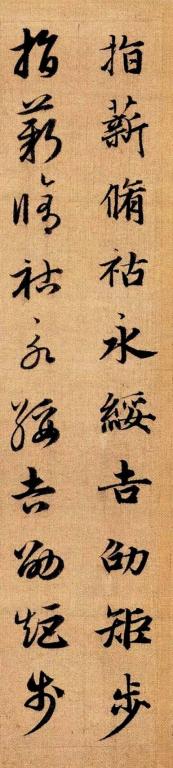 指薪脩祜永綏吉劭矩步
指薪脩祜永綏吉劭矩步